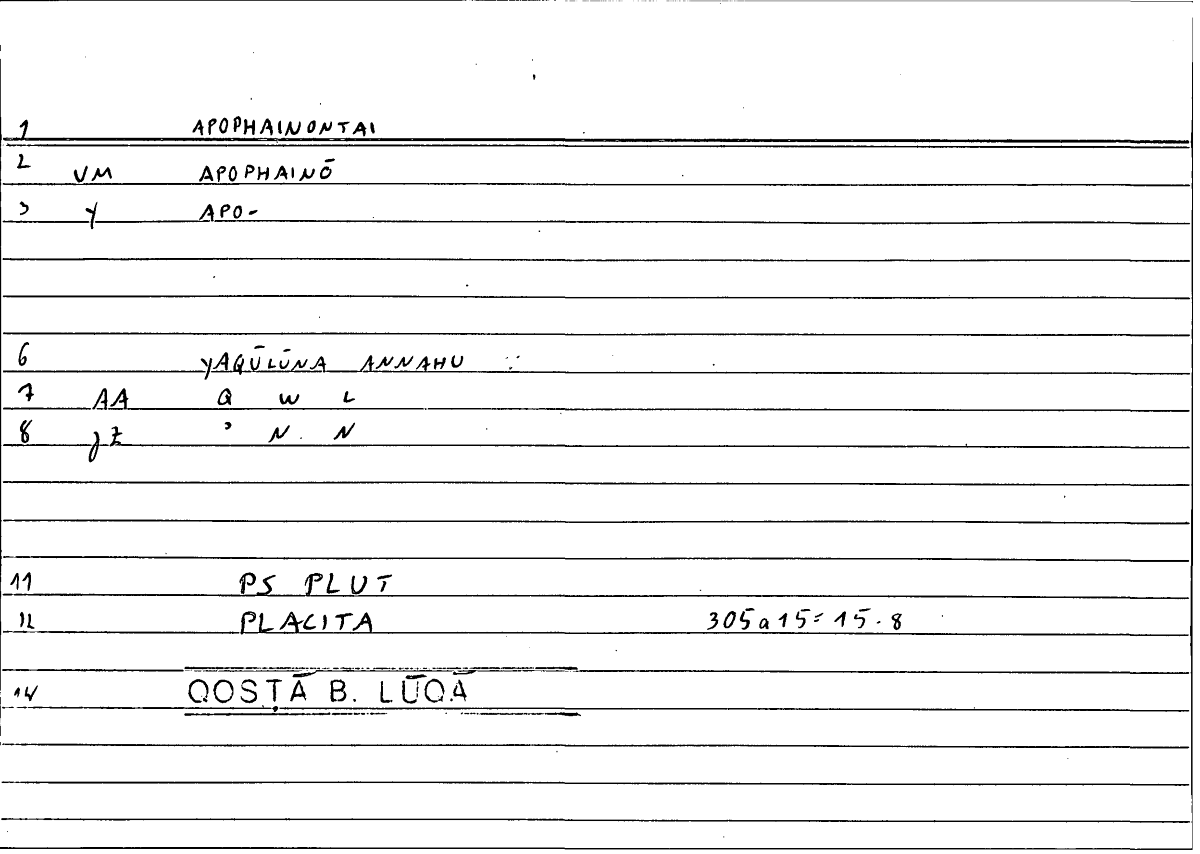 1 APOPHAINONTAI
2 VM APOPHAINŌ
3 Y APO-
6 YAQŪLŪNA ANNAHU ::
7 AA Q W L
8 JZ ' N N
11 PS PLUT
12 PLACITA 305a15=15.8
14 QOSṬĀ B. LŪQĀ